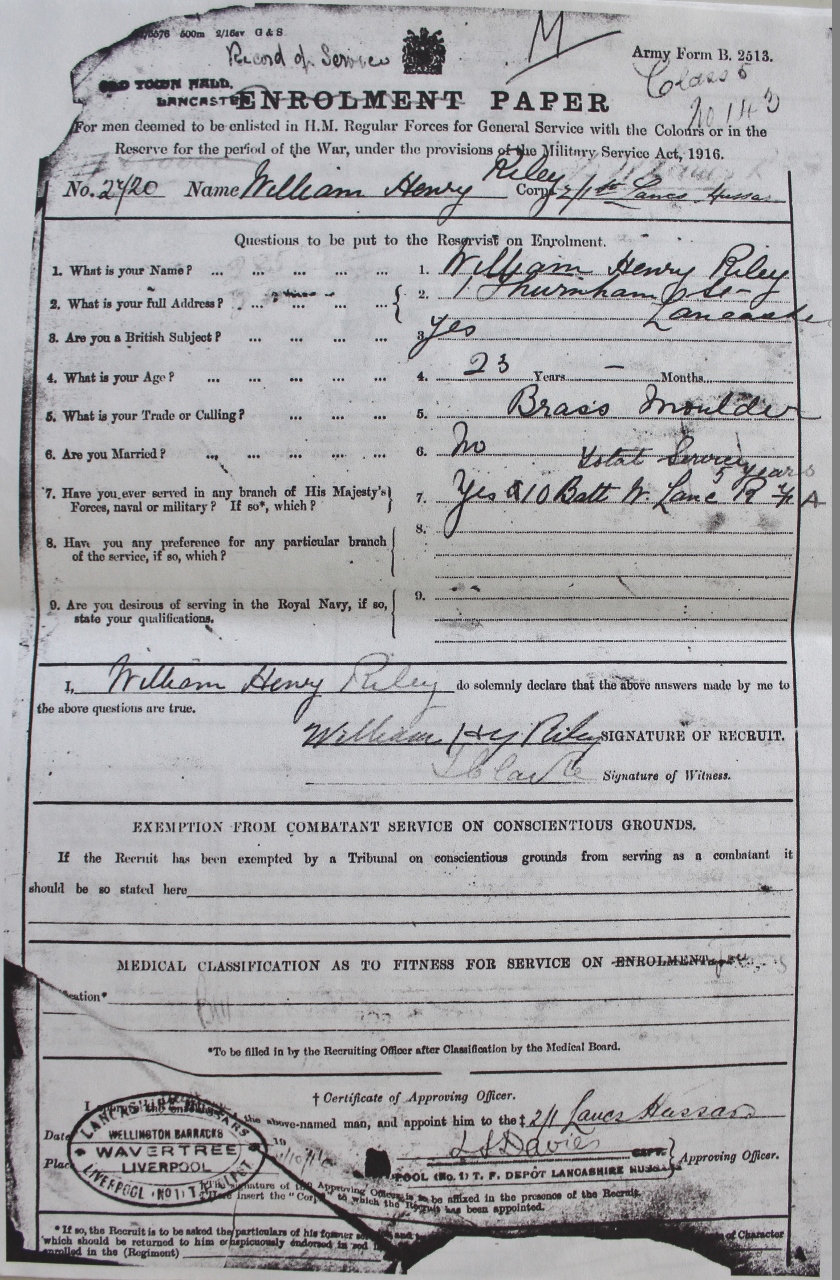 500m 2/16 G & S
Record of Service
M
Army Form B. 2513.
Class 5
No 143
OLD TOWN HALL,
LANCASTER
ENROLMENT PAPER
For men deemed to be enlisted in H.M. Regular Forces for General Service with the Colours or in the
Reserve for the period of the War, under the provisions of the Military Service Act, 1916.
No. 2720 Name William Henry Riley Corps 2/1st Lancs Hussars
Questions to be put to the Reservist on Enrolment.
1. What is your Name? ... ... ... ... 1. William Henry Riley
2. What is your full Address? ... ... ... ... 2. 1 Thurnham St
Lancaster
3. Are you a British Subject? ... ... ... 3. Yes
4. What is your Age? ... ... ... ... 4. 23 Years — Months
5. What is your Trade or Calling? ... ... ... 5. Brass Moulder
6. Are you Married? ... ... ... ... 6. No
Total Service 5 years
7. Have you ever served in any branch of His Majesty's
Forces, naval or military? If so*, which? 7. Yes 10 Batt W. Lancs R F A
8. Have you any preference for any particular branch
of the service, if so, which? 8.
9. Are you desirous of serving in the Royal Navy, if so,
state your qualifications. 9.
I, William Henry Riley do solemnly declare that the above answers made by me to
the above questions are true.
William Hy Riley SIGNATURE OF RECRUIT.
Signature of Witness.
EXEMPTION FROM COMBATANT SERVICE ON CONSCIENTIOUS GROUNDS.
If the Recruit has been exempted by a Tribunal on conscientious grounds from serving as a combatant it
should be so stated here
MEDICAL CLASSIFICATION AS TO FITNESS FOR SERVICE ON ENROLMENT
ication*
*To be filled in by the Recruiting Officer after Classification by the Medical Board.
† Certificate of Approving Officer.
I the above-named man, and appoint him to the ‡ 2/1 Lancs Hussars
Date 19
Place
LANCASHIRE HUSSARS
WELLINGTON BARRACKS
WAVERTREE
LIVERPOOL
LIVERPOOL (NO 1) T.
L S Davies
CAPT. Approving Officer.
POOL (No. 1) T. F. DEPÔT LANCASHIRE HUSSARS
signature of the Approving Officer is to be affixed in the presence of the Recruit.
Here insert the "Corps" to which the Recruit has been appointed.
*If so, the Recruit is to be asked the particulars of his former service, and of Character
which should be returned to him conspicuously endorsed in red
enrolled in the (Regiment)